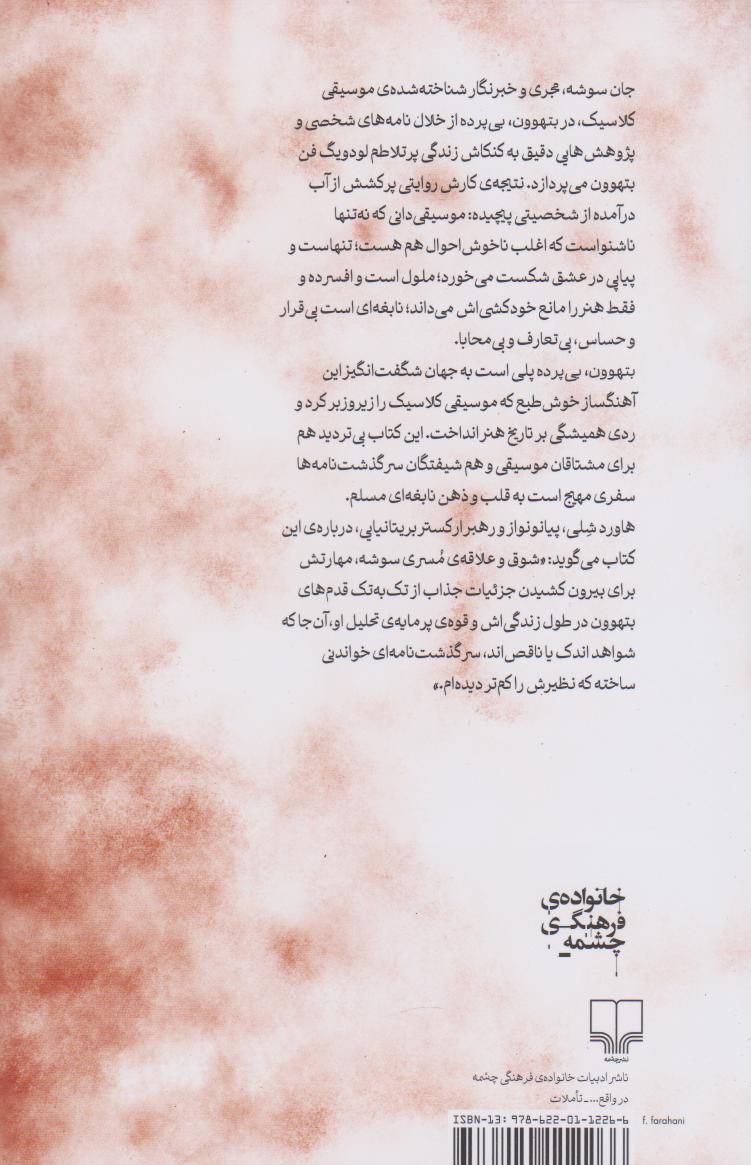 جان سوشه، مجری و خبرنگار شناخته‌شده‌ی موسیقی
کلاسیک، در بتهوون، بی‌پرده از خلال نامه‌های شخصی و
پژوهش‌هایی دقیق به کنکاش زندگی پرتلاطم لودویگ فن
بتهوون می‌پردازد. نتیجه‌ی کارش روایتی پرکشش از آب
درآمده از شخصیتی پیچیده: موسیقی‌دانی که نه‌تنها
ناشنواست که اغلب ناخوش‌احوال هم هست؛ تنهاست و
پیاپی در عشق شکست می‌خورد؛ ملول است و افسرده و
فقط هنر را مانع خودکشی‌اش می‌داند؛ نابغه‌ای است بی‌قرار
و حساس، بی‌تعارف و بی‌محابا.
بتهوون، بی‌پرده پلی است به جهان شگفت‌انگیز این
آهنگساز خوش‌طبع که موسیقی کلاسیک را زیروزبر کرد و
ردی همیشگی بر تاریخ هنر انداخت. این کتاب بی‌تردید هم
برای مشتاقان موسیقی و هم شیفتگان سرگذشت‌نامه‌ها
سفری مهیج است به قلب و ذهن نابغه‌ای مسلم.
هاورد شِلی، پیانونواز و رهبر ارکستر بریتانیایی، درباره‌ی این
کتاب می‌گوید: «شوق و علاقه‌ی مُسری سوشه، مهارتش
برای بیرون کشیدن جزئیات جذاب از تک‌به‌تک قدم‌های
بتهوون در طول زندگی‌اش و قوه‌ی پرمایه‌ی تحلیل او، آن‌جا که
شواهد اندک یا ناقص‌اند، سرگذشت‌نامه‌ای خواندنی
ساخته که نظیرش را کم‌تر دیده‌ام.»
خانواده‌ی
فرهنگی
چشمه
نشرچشمه
ناشر ادبیات خانواده‌ی فرهنگی چشمه
در واقع... ـ تأملات
ISBN-13: 978-622-01-1226-6
f. farahani